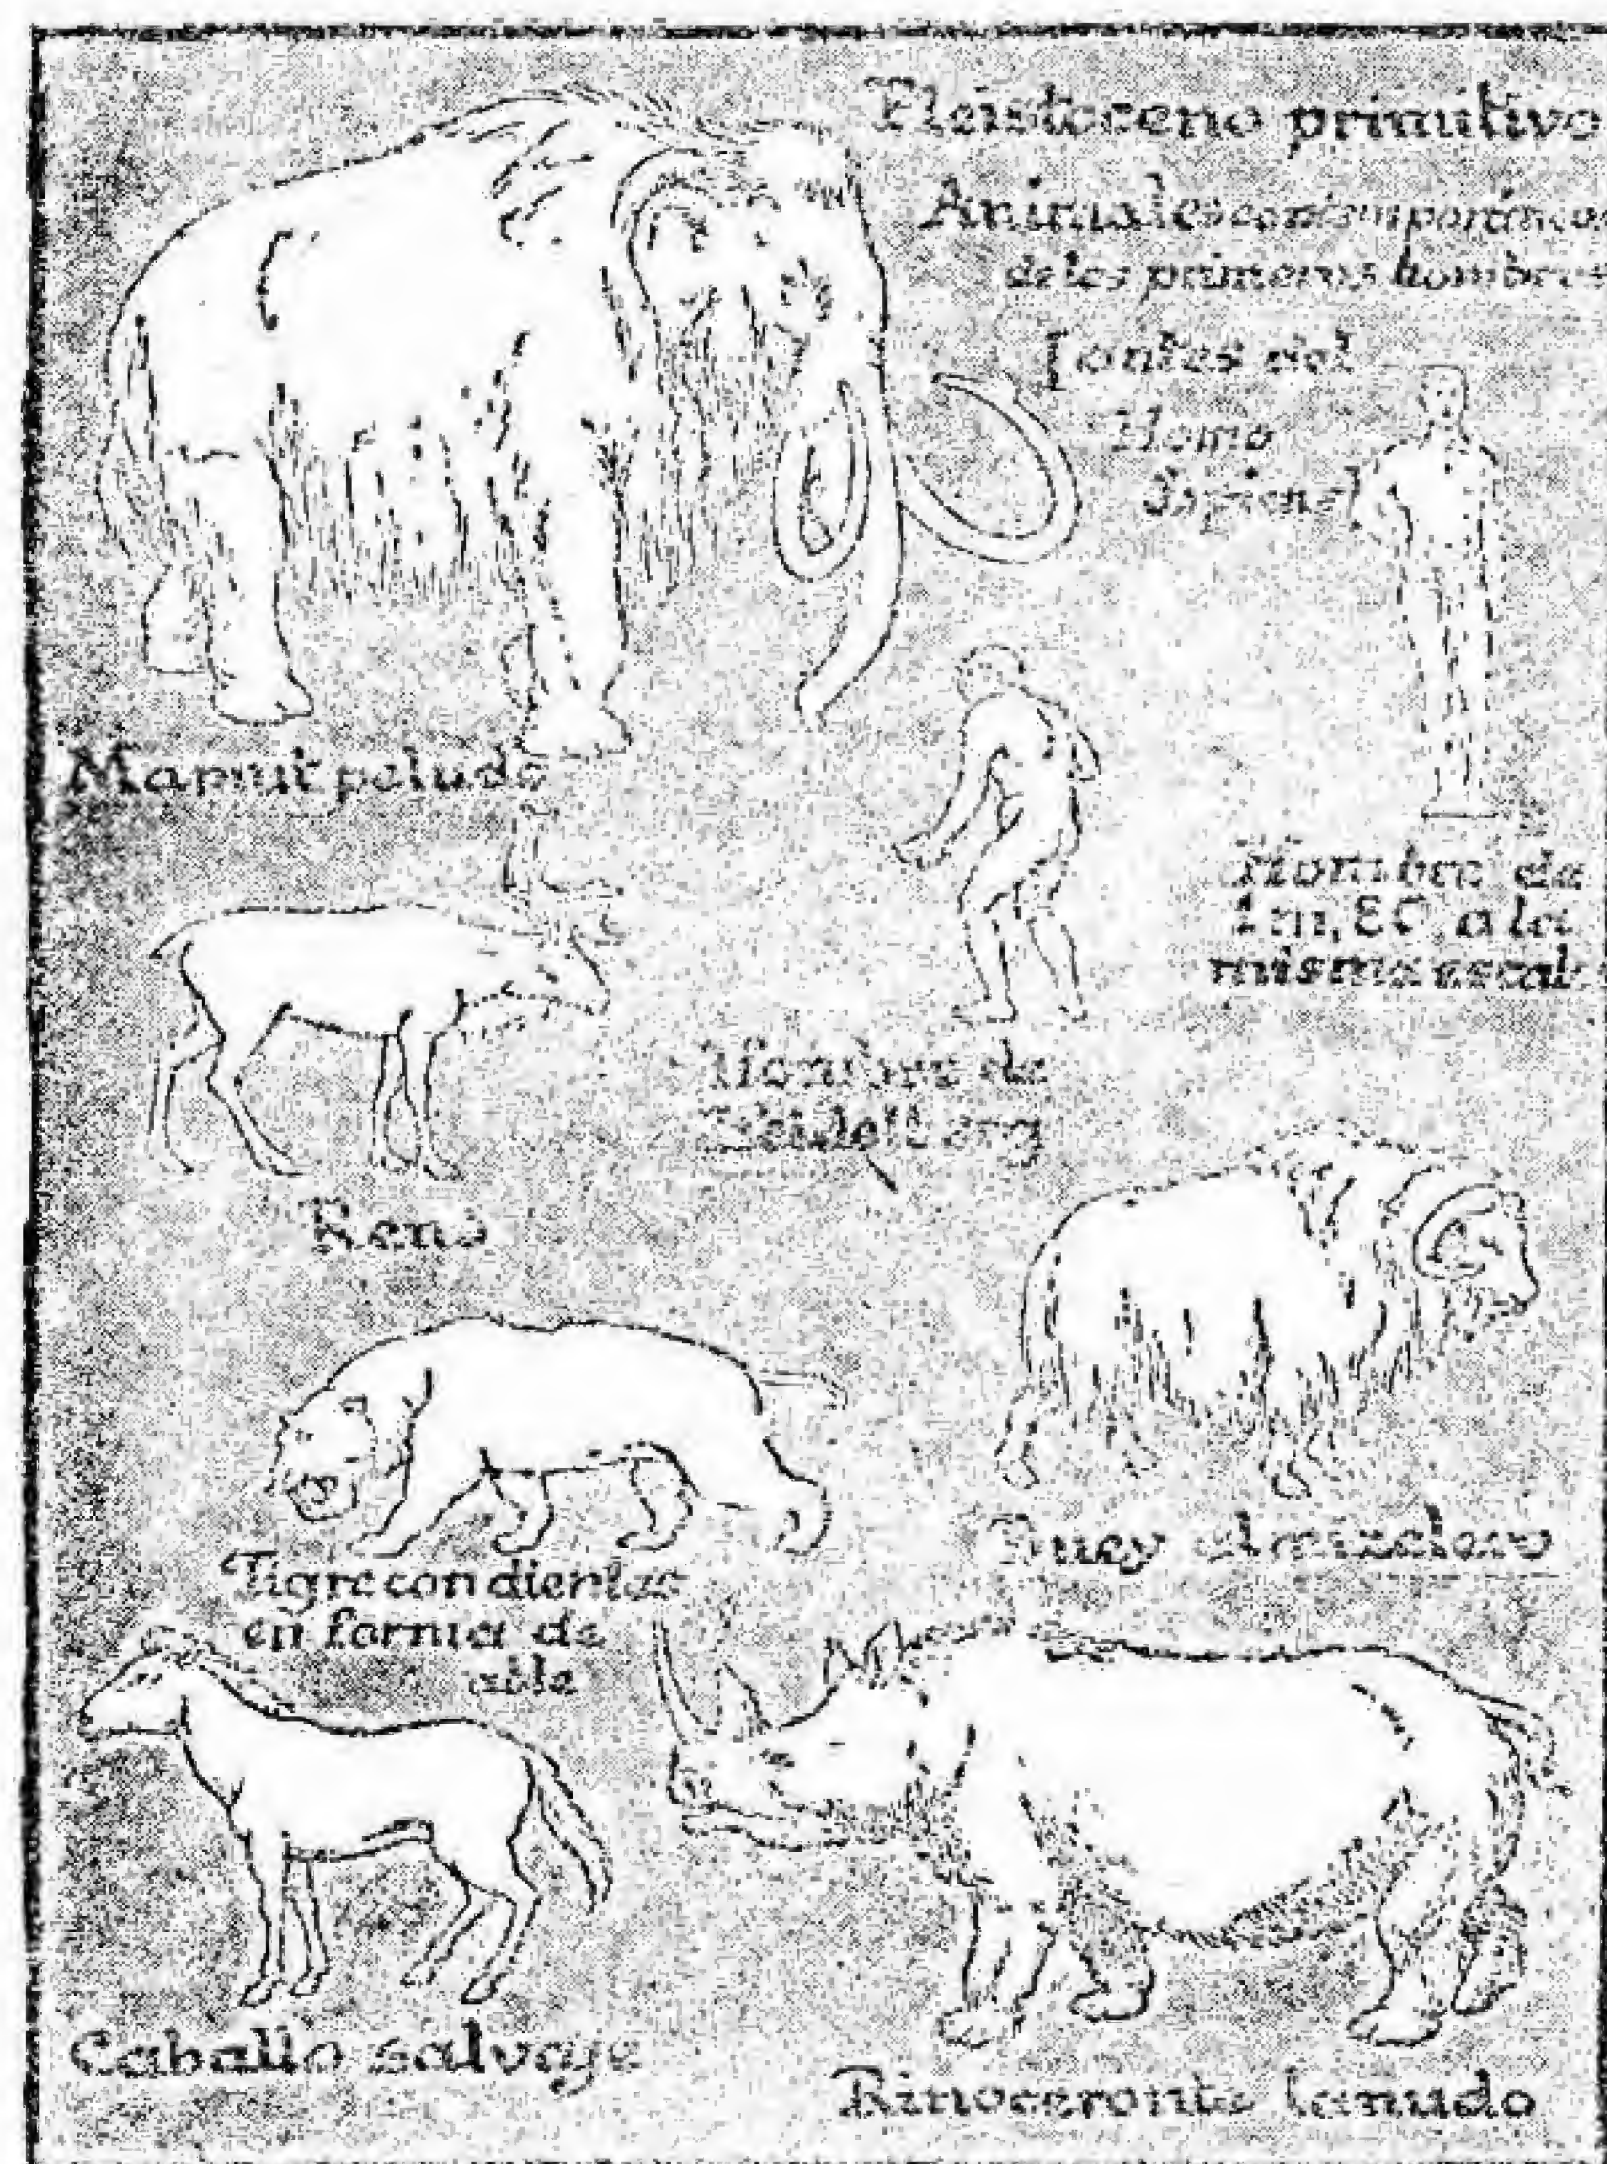 Pleistoceno primitivo
Animales contemporáneos
de los primeros hombres
[antes del
Homo
Sapiens]
Mamut peludo
Hombre de
1 m, 80, a la
misma escala
Hombre de
Heidelberg
Reno
Tigre con dientes
en forma de
sable
Buey almizclero
Caballo salvaje
Rinoceronte lanudo